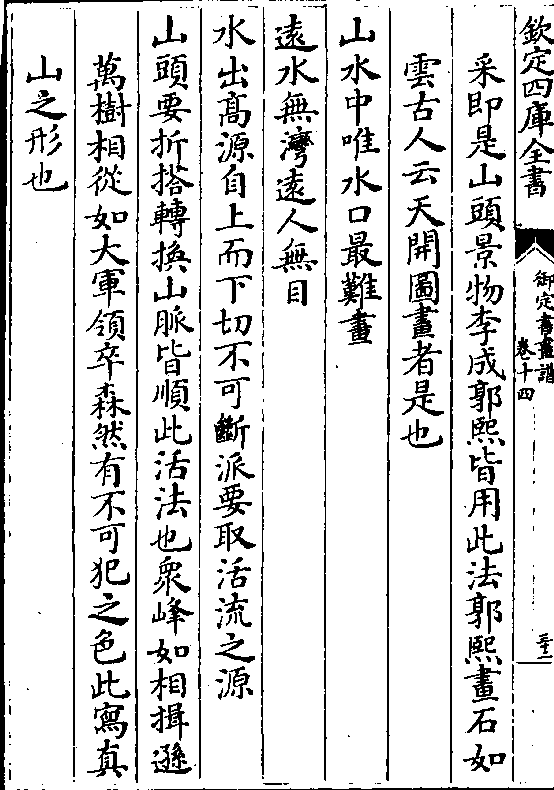 欽定四庫全書
御定書畫譜
卷十四
三十二
采即是山頭景物李成郭熙皆用此法郭熙畫石如
雲古人云天開圖畫者是也
山水中唯水口最難畫
遠水無灣遠人無目
水出高源自上而下切不可斷派要取活流之源
山頭要折搭轉換山脈皆順此活法也衆峰如相揖遜
萬樹相從如大軍領卒森然有不可犯之色此寫真
山之形也